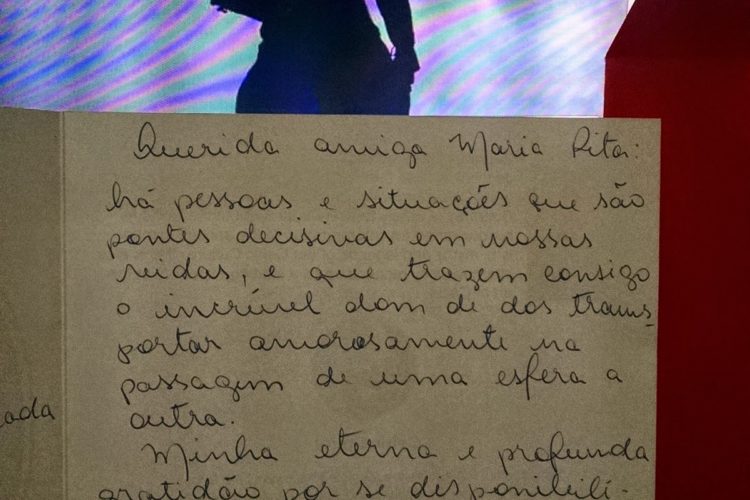 Querida amiga Maria Rita:
há pessoas e situações que são
pontes decisivas em nossas
vidas, e que trazem consigo
o incrível dom de dos trans-
portar amorosamente na
passagem de uma esfera a
outra.
Minha eterna e profunda
gratidão por se disponibili-